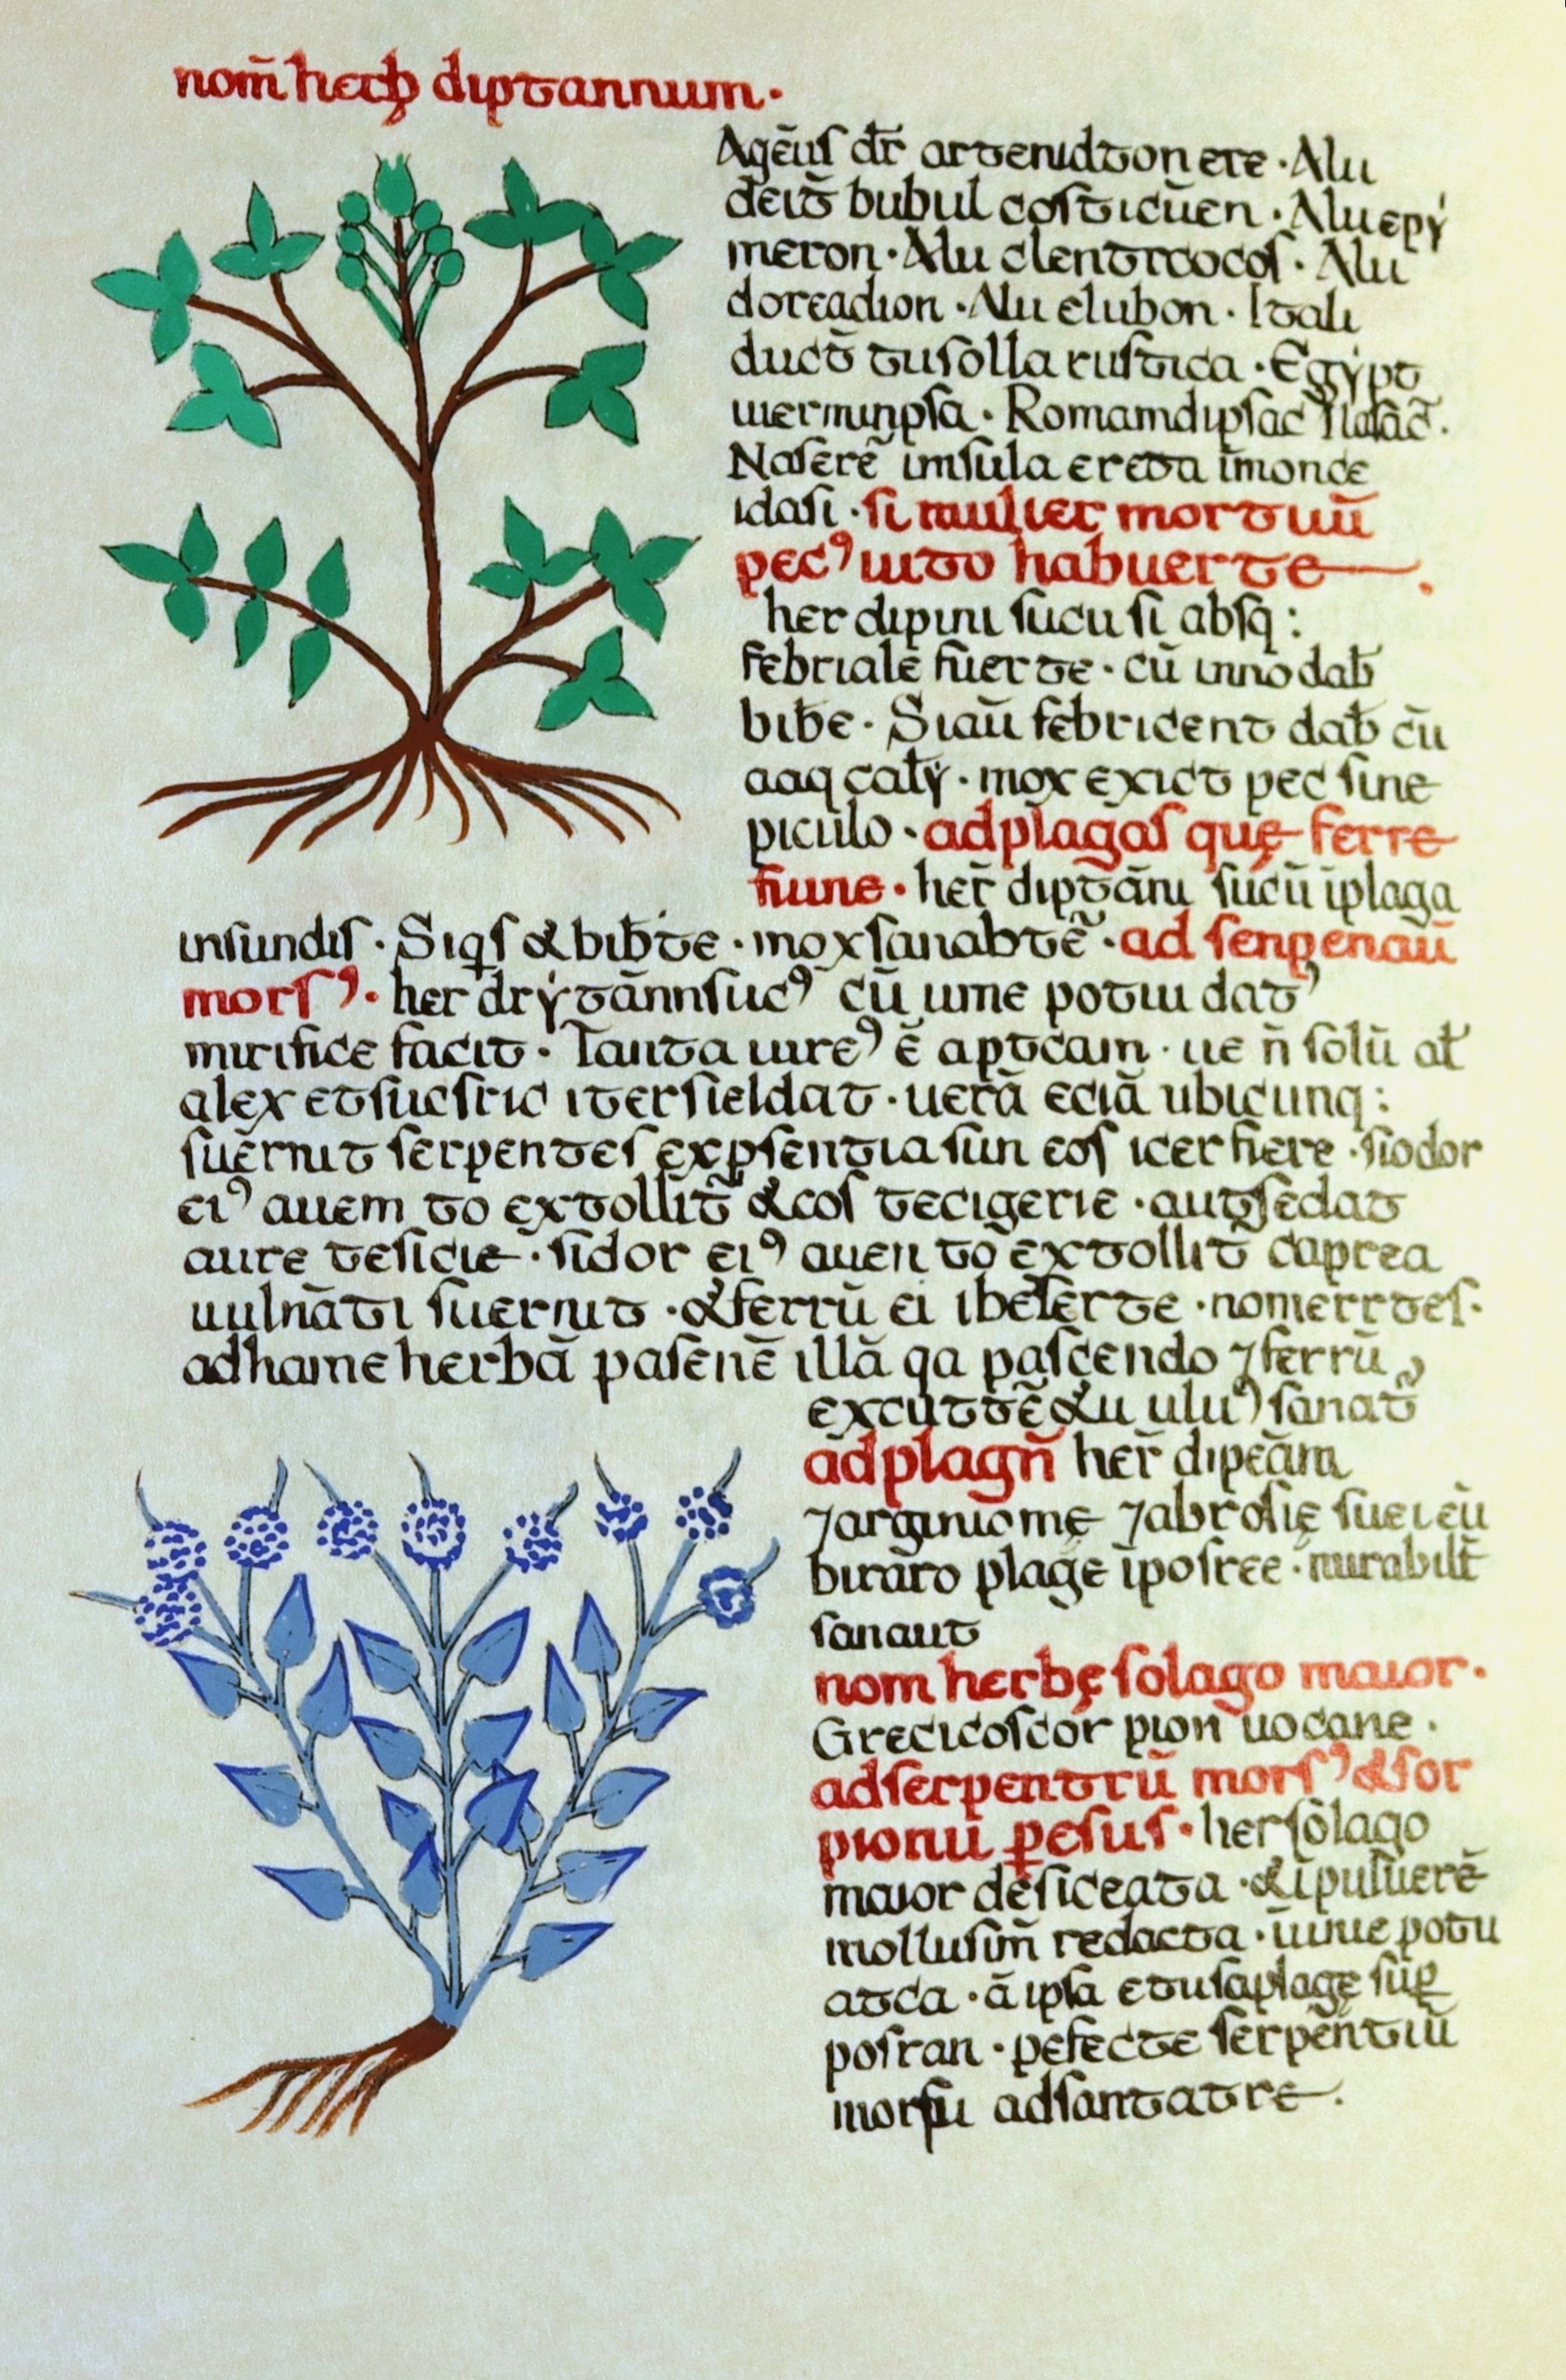 nom̄ herb diptannum.
Agēus dr̄ artemidton ere · Alii
deit̄ bubul costicūen · Alii epẏ
meron · Alii clentrcocos · Alii
doreadion · Alii elubon · Itali
duct̄ tusolla rustica · Egẏpt
uermmpsa · Romam dipsac
Naserē imsula ereta īmonce
idasi · si mulier mortuū
pecꝰ uito habuerte
her dipini sucu si absq:
febriale fuerte · cū inno dab̄
bibe · Siaū febricent dab̄ cū
aaq calẏ · mox exict pec sine
piculo · ad plagas quę ferre
fiune · her̄ diptāni sucū īplaga
insundis · Siqs & bibte · mox sanabtē · ad senpenaū
morsꝰ · her drẏtānnsucꝰ cū uine potui datꝰ
mirifice facit · Tanta uireꝰ ē aptcam · ue n̄ solū at̄
alex etsucstric itersieldat · uerā eciā ubicunq:
suērnit serpentes expsentia sun eos icerfiere · siodor
eiꝰ auem to extollit̄ & cos tecigerie · autsedat
aure tesicie · sidor eiꝰ auen tō extollit̄ caprea
uulnāti suernit · & ferrū ei ibeserte · nomerrtes·
adhame herbā pasenē illā qa pascendo ⁊ ferrū
excuttē & u uluꝰ sanat̄
ad plagn̄ her̄ dipeām
⁊arginiomę ⁊abrosię suei eū
birāro plagę īposree · mirabilt̄
sanaut
nom herbę solago maior·
Grecicoscor pion uocane ·
ad serpentrū morsꝰ & sor
pionu pesus · her solago
maior desiceata · & ī puluerē
mollusim̄ redacta · ūnie potu
atca · ā ipsa etusāplagę suꝑ
posran · pefecte serpēntiū
morsu adsantatre ·